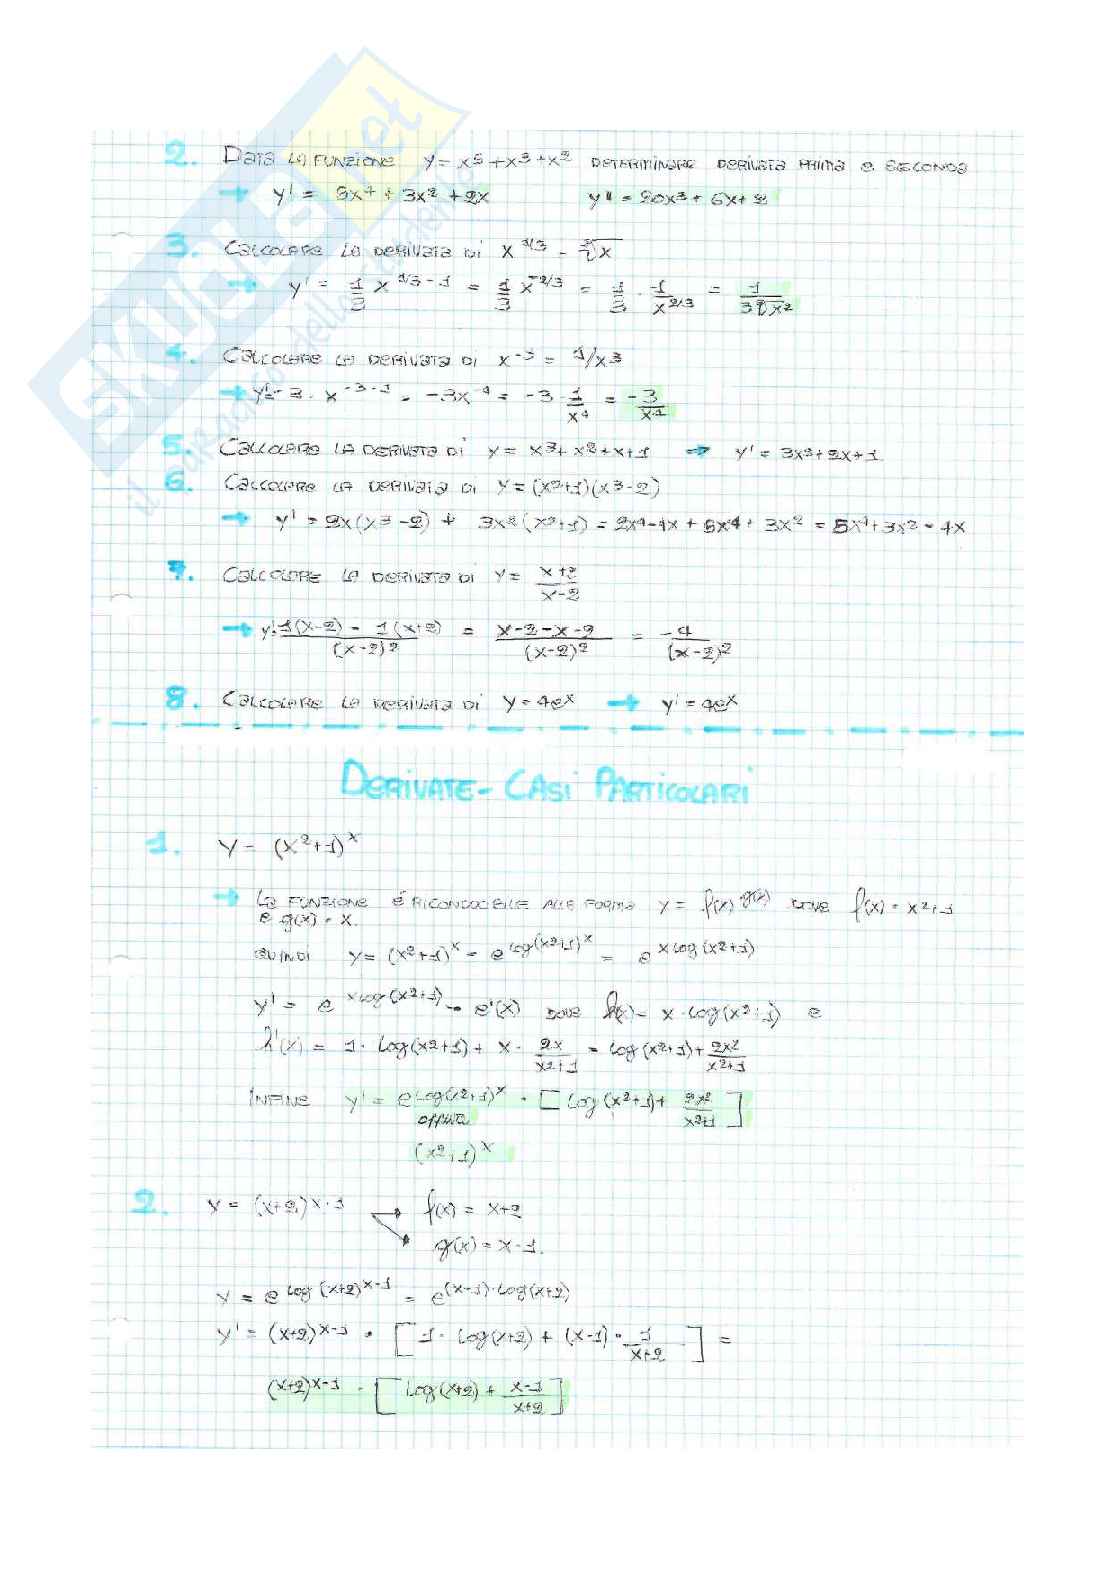 2. Data la funzione y = x⁵ + x³ + x² determinare derivata prima e seconda
→ y' = 5x⁴ + 3x² + 2x y'' = 20x³ + 6x + 2
3. Calcolare la derivata di x^1/3 = ³√x
→ y' = 1/3 x^1/3 - 1 = 1/3 x^-2/3 = 1/3 · 1/x^2/3 = 1/3∛x²
4. Calcolare la derivata di x⁻³ = 1/x³
→ y' = -3 · x^-3-1 = -3x⁻⁴ = -3 · 1/x⁴ = -3/x⁴
5. Calcolare la derivata di y = x³ + x² + x + 1 → y' = 3x² + 2x + 1
6. Calcolare la derivata di y = (x²+1)(x³-2)
→ y' = 2x(x³-2) + 3x²(x²+1) = 2x⁴-4x + 3x⁴ + 3x² = 5x⁴+3x²-4x
7. Calcolare la derivata di y = x+2/x-2
→ y' = 1(x-2) - 1(x+2)/(x-2)² = x-2-x-2/(x-2)² = -4/(x-2)²
8. Calcolare la derivata di y = 4eˣ → y' = 4eˣ
Derivate - Casi Particolari
1. y = (x²+1)ˣ
→ La funzione é riconducibile alle forma y = f(x)^g(x) dove f(x) = x²+1
e g(x) = x.
quindi y = (x²+1)ˣ = e^log(x²+1)ˣ = e^x log(x²+1)
y' = e^x log(x²+1) · e'(x) dove h(x) = x · log(x²+1) e
h'(x) = 1 · log(x²+1) + x · 2x/x²+1 = log(x²+1) + 2x²/x²+1
Infine y' = e^log(x²+1)ˣ · [log(x²+1) + 2x²/x²+1]
oppure
(x²+1)ˣ
2. y = (x+2)^x-1 → f(x) = x+2
g(x) = x-1.
y = e^log(x+2)^x-1 = e^(x-1)·log(x+2)
y' = (x+2)^x-1 · [1 · log(x+2) + (x-1) · 1/x+2] =
(x+2)^x-1 · [log(x+2) + x-1/x+2]
SKUOLA.net